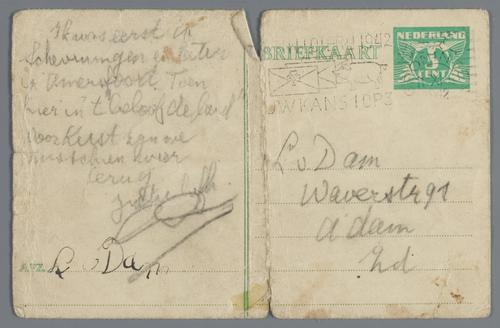 Ik was eerst in
Scheveningen en later
in Amersfoort. Toen
hier in 't beloofde land"
voor Kerst zijn we
misschien weer
terug
AFZ. L v Dam
1942
BRIEFKAART
NEDERLAND
CENT
UW KANS IOP3
L. v. Dam
Waverstr 91
A'dam
Zd